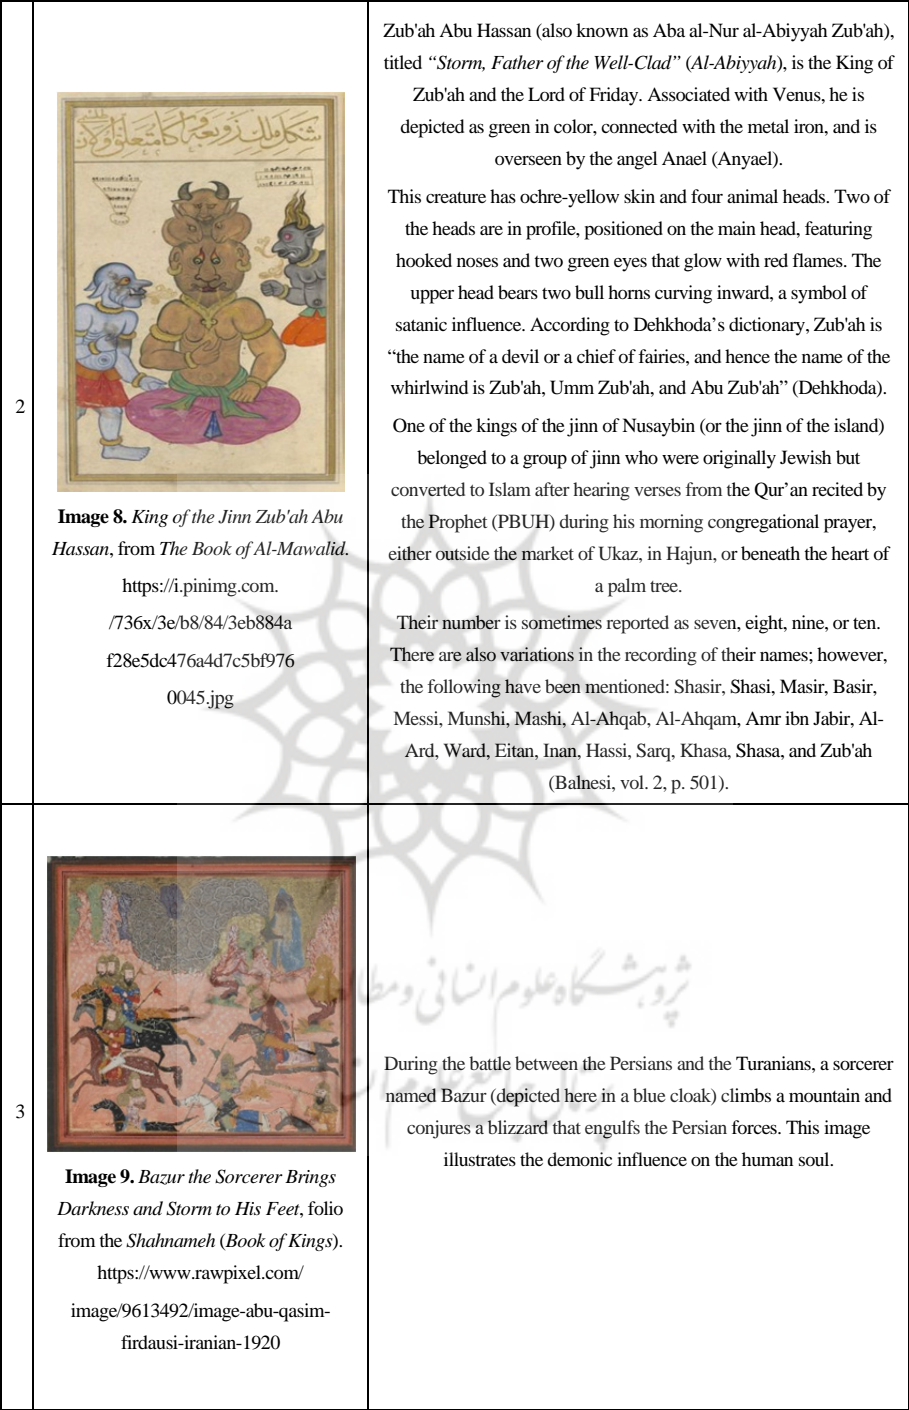 2
شکل ملک زوبعه
Image 8. King of the Jinn Zub'ah Abu
Hassan, from The Book of Al-Mawalid.
https://i.pinimg.com.
/736x/3e/b8/84/3eb884a
f28e5dc476a4d7c5bf976
0045.jpg
Zub'ah Abu Hassan (also known as Aba al-Nur al-Abiyyah Zub'ah),
titled “Storm, Father of the Well-Clad” (Al-Abiyyah), is the King of
Zub'ah and the Lord of Friday. Associated with Venus, he is
depicted as green in color, connected with the metal iron, and is
overseen by the angel Anael (Anyael).
This creature has ochre-yellow skin and four animal heads. Two of
the heads are in profile, positioned on the main head, featuring
hooked noses and two green eyes that glow with red flames. The
upper head bears two bull horns curving inward, a symbol of
satanic influence. According to Dehkhoda’s dictionary, Zub'ah is
“the name of a devil or a chief of fairies, and hence the name of the
whirlwind is Zub'ah, Umm Zub'ah, and Abu Zub'ah” (Dehkhoda).
One of the kings of the jinn of Nusaybin (or the jinn of the island)
belonged to a group of jinn who were originally Jewish but
converted to Islam after hearing verses from the Qur’an recited by
the Prophet (PBUH) during his morning congregational prayer,
either outside the market of Ukaz, in Hajun, or beneath the heart of
a palm tree.
Their number is sometimes reported as seven, eight, nine, or ten.
There are also variations in the recording of their names; however,
the following have been mentioned: Shasir, Shasi, Masir, Basir,
Messi, Munshi, Mashi, Al-Ahqab, Al-Ahqam, Amr ibn Jabir, Al-
Ard, Ward, Eitan, Inan, Hassi, Sarq, Khasa, Shasa, and Zub'ah
(Balnesi, vol. 2, p. 501).
3
Image 9. Bazur the Sorcerer Brings
Darkness and Storm to His Feet, folio
from the Shahnameh (Book of Kings).
https://www.rawpixel.com/
image/9613492/image-abu-qasim-
firdausi-iranian-1920
During the battle between the Persians and the Turanians, a sorcerer
named Bazur (depicted here in a blue cloak) climbs a mountain and
conjures a blizzard that engulfs the Persian forces. This image
illustrates the demonic influence on the human soul.
پژوهشگاه علوم انسانی و مطالعات
پرتال جامع علوم انسانی